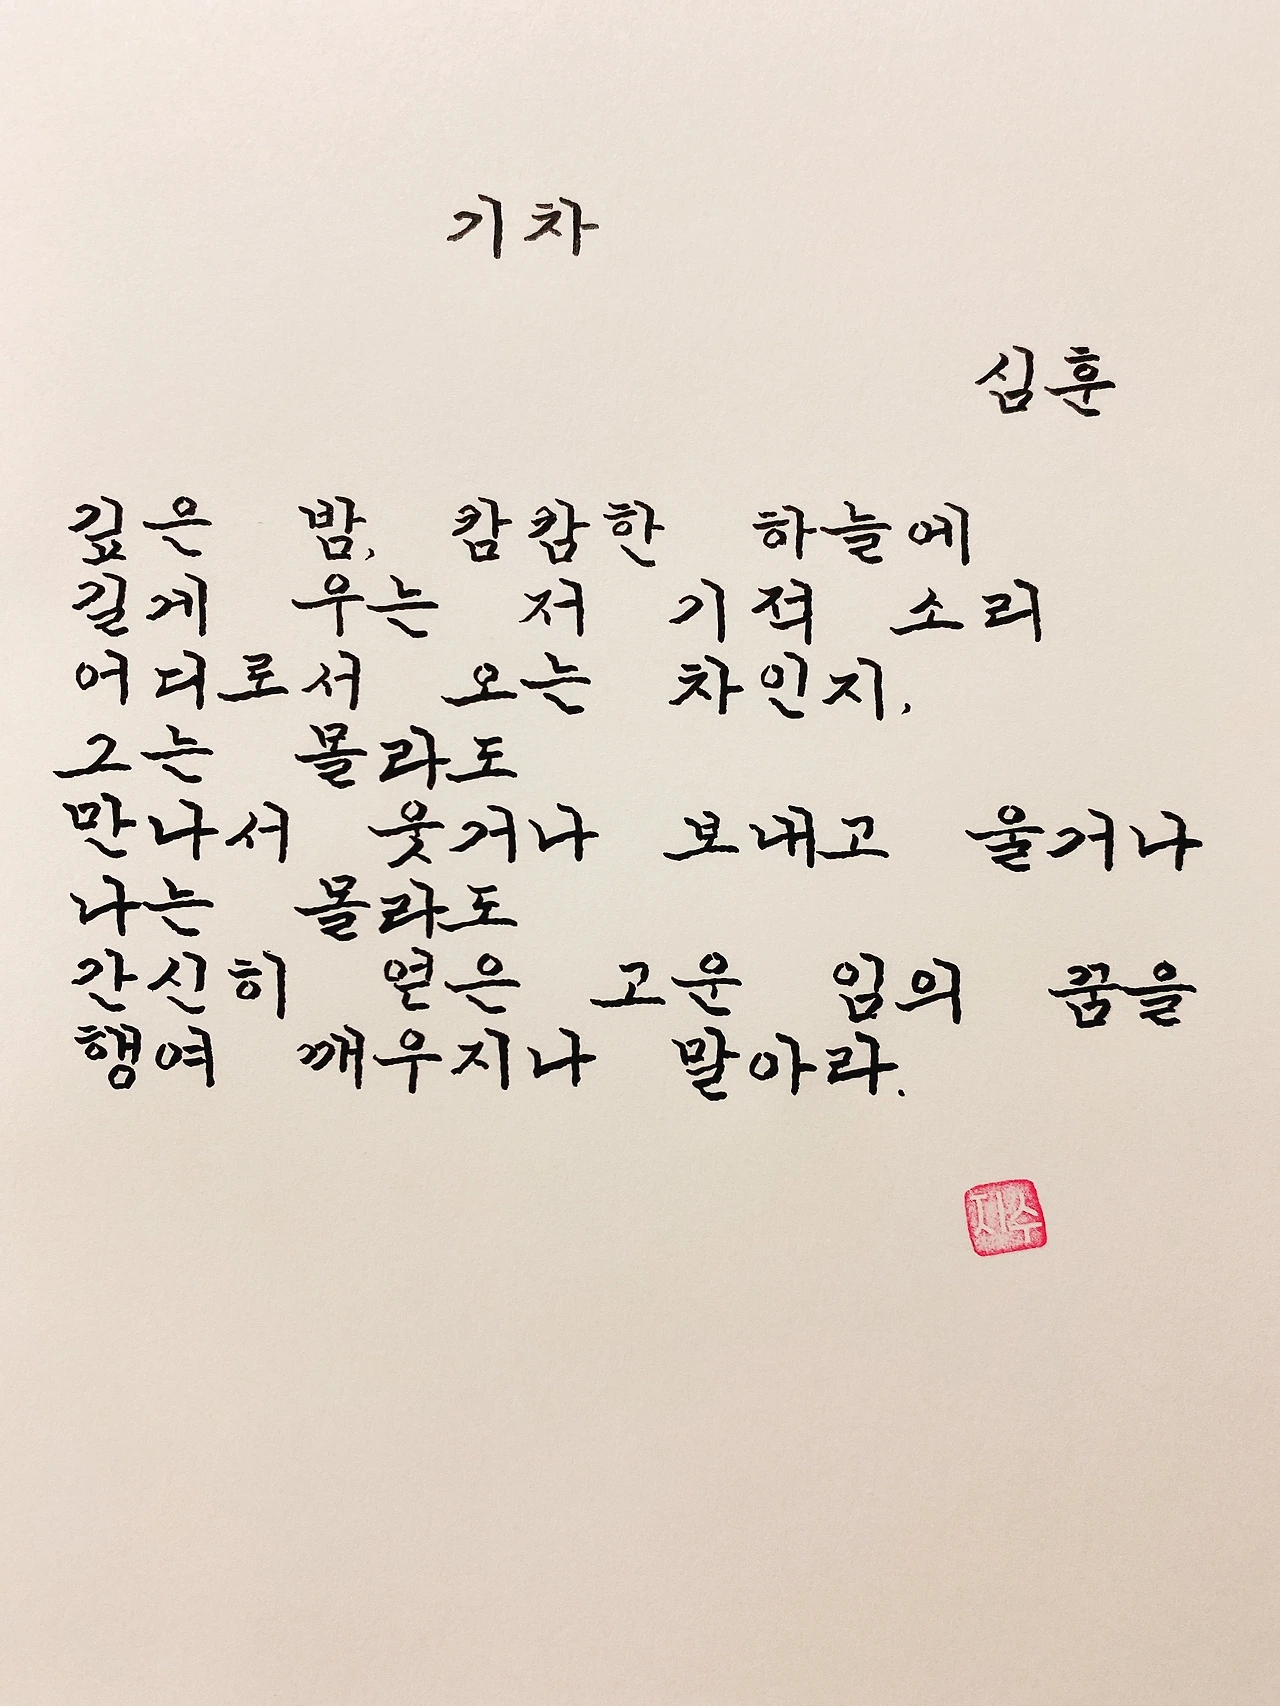 기차
심훈
깊은 밤, 캄캄한 하늘에
길게 우는 저 기적 소리
어디로서 오는 차인지,
그는 몰라도
만나서 웃거나 보내고 울거나
나는 몰라도
간신히 얻은 고운 임의 꿈을
행여 깨우지나 말아라.